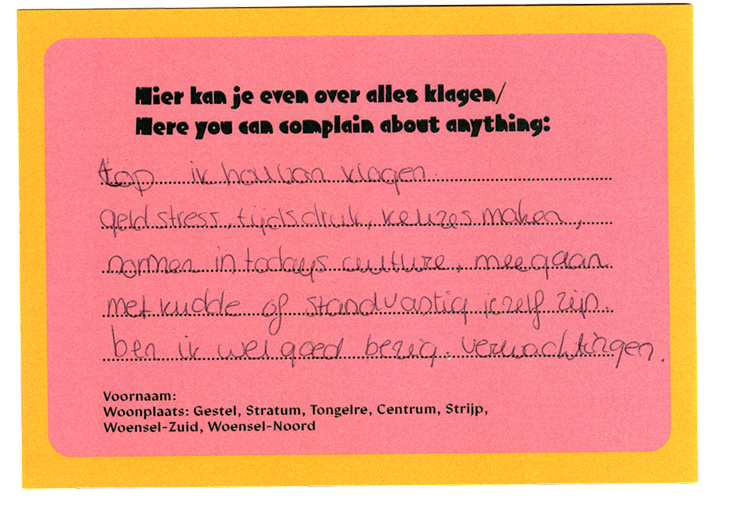 Hier kan je even over alles klagen/
Here you can complain about anything:
top ik hou van klagen.
geldstress, tijdsdruk, keuzes maken,
normen in todays culture, meegaan
met kudde of standvastig jezelf zijn.
ben ik wel goed bezig. verwachtingen.
Voornaam:
Woonplaats: Gestel, Stratum, Tongelre, Centrum, Strijp,
Woensel-Zuid, Woensel-Noord